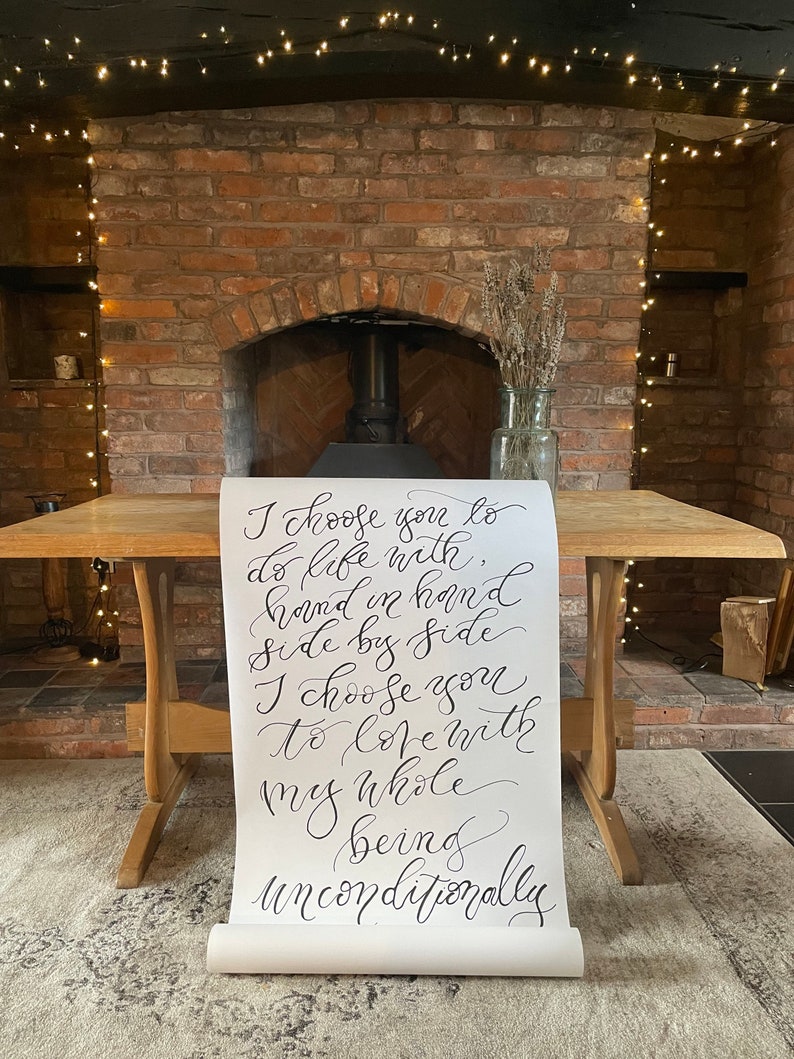 I choose you to
do life with,
hand in hand
side by side
I choose you
to love with
my whole
being
unconditionally